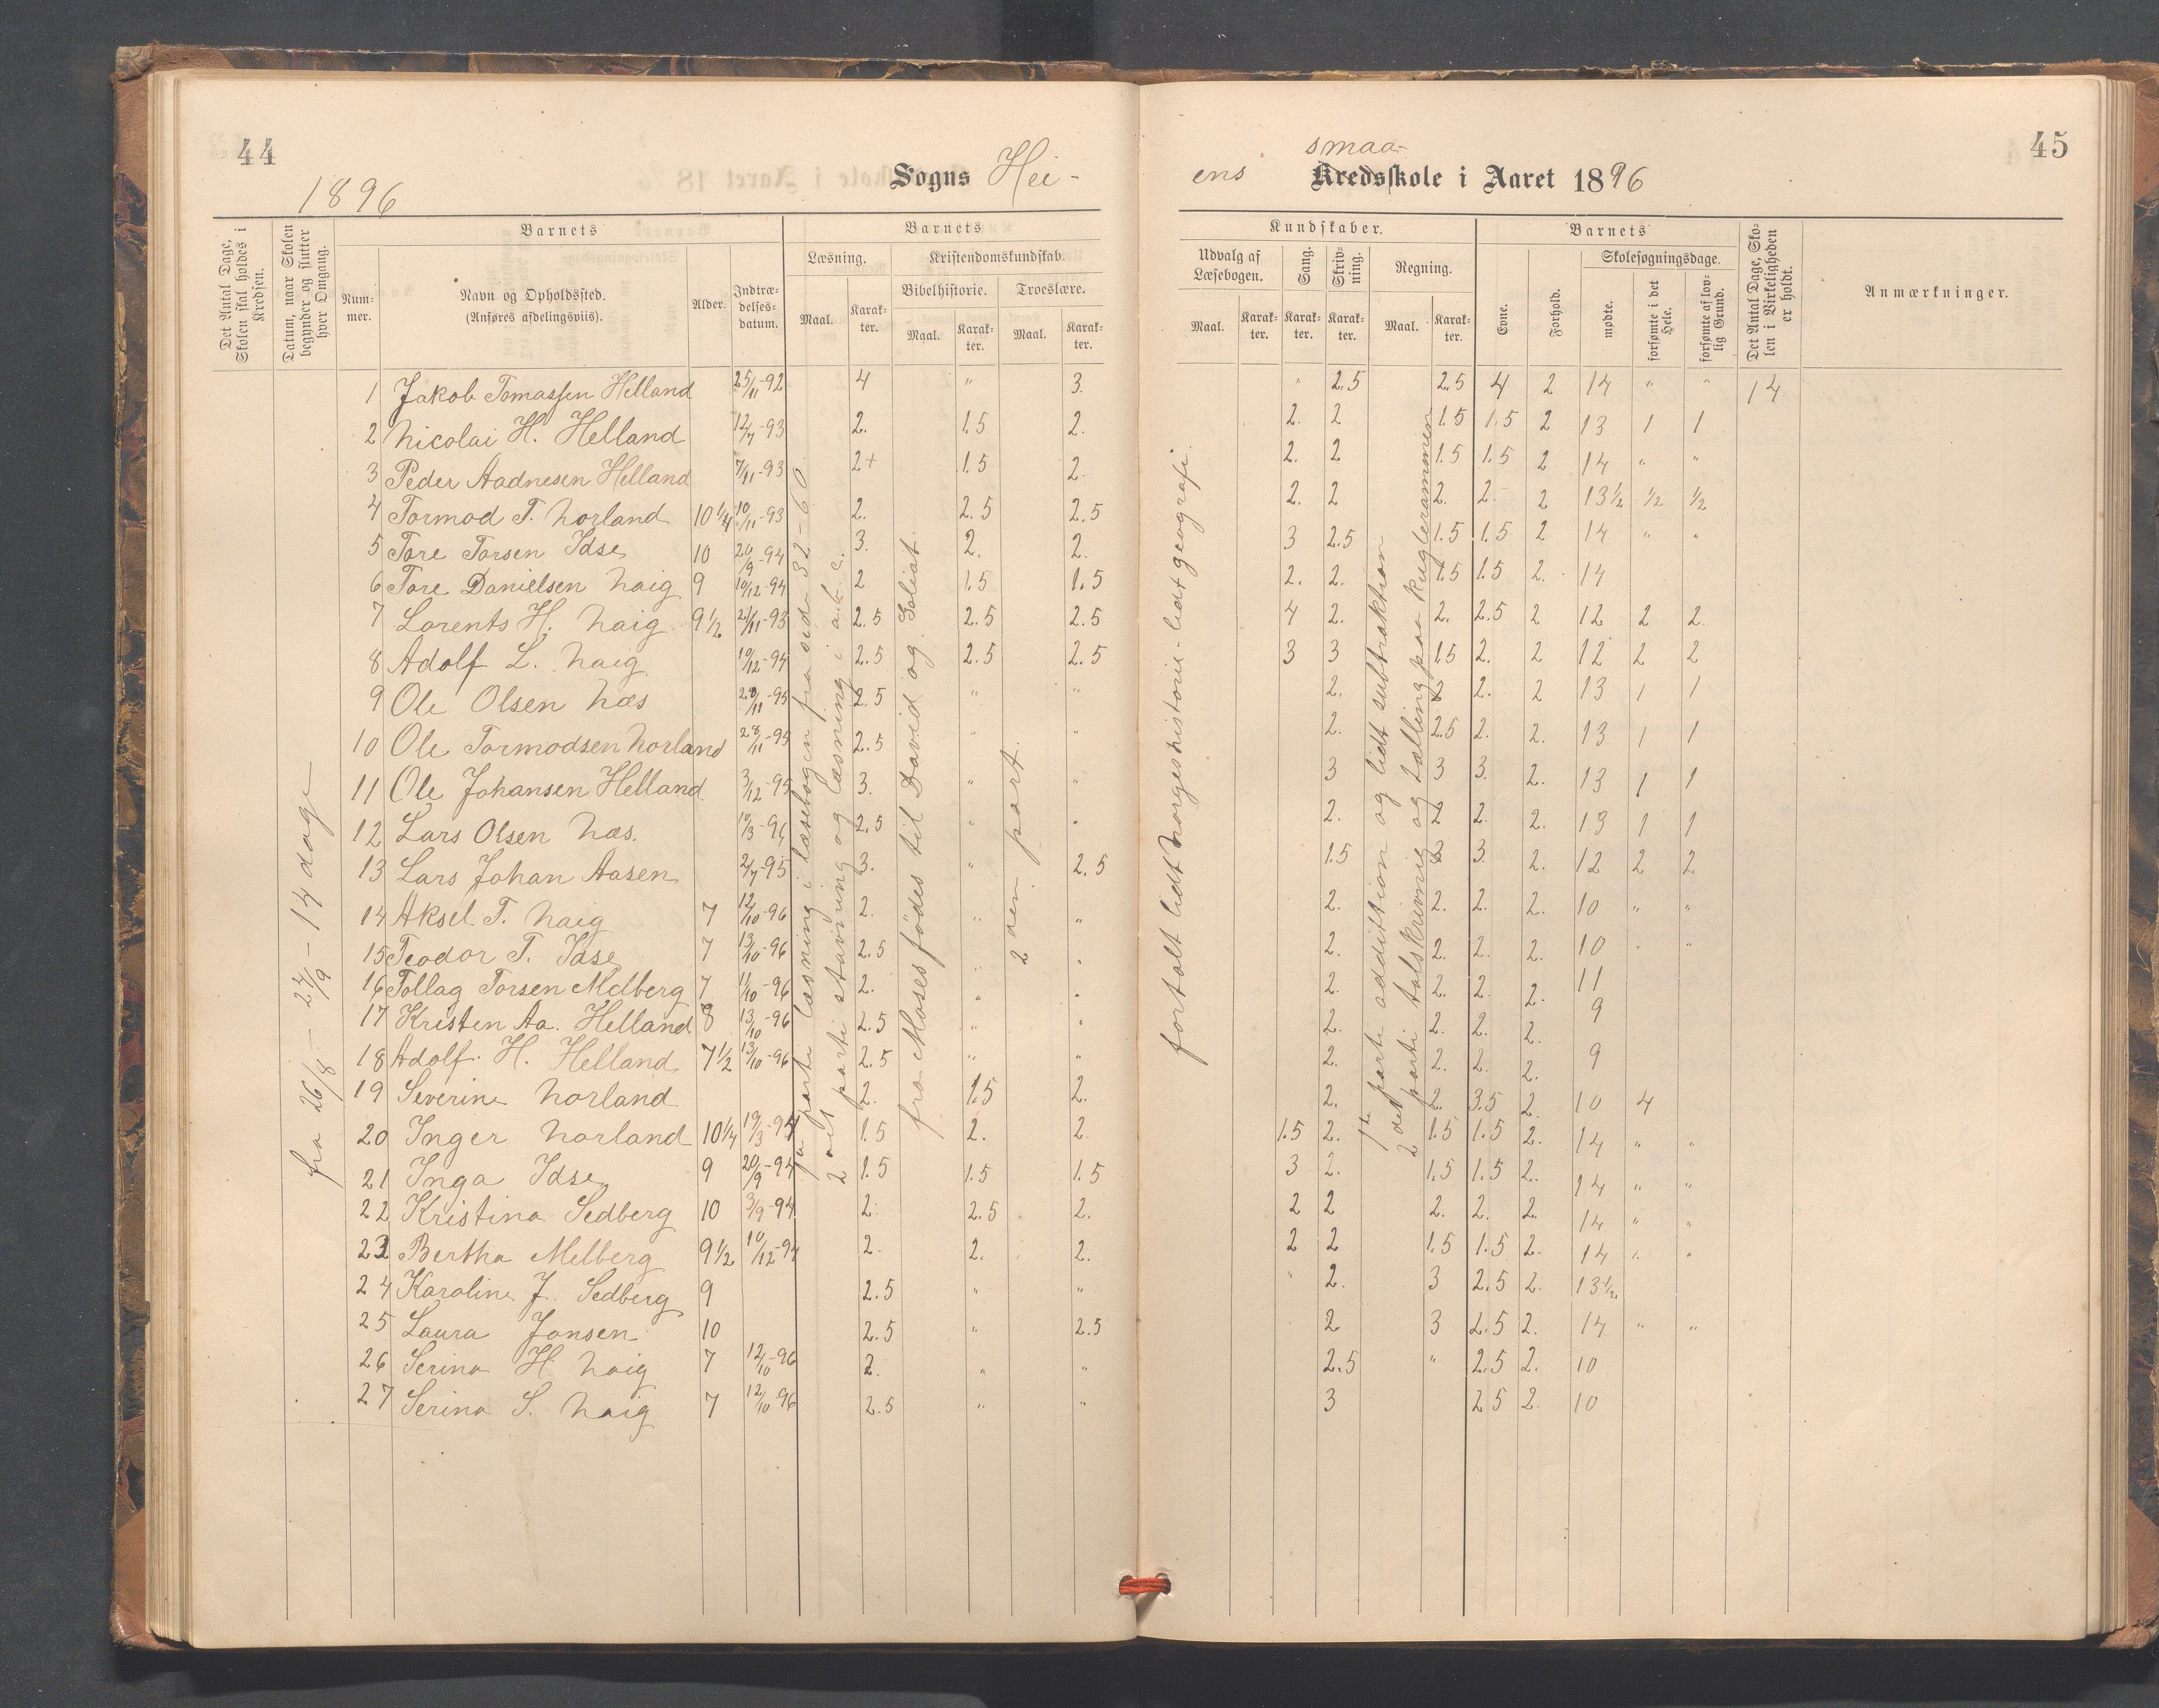 44
45
1896
Sogns Hei-
ens smaa-
Kredsskole i Aaret 1896
Det Antal Dage, Skolen skal holdes i Kredsen.
Datum, naar Skolen begynder og slutter hver Omgang.
Barnets
Num-mer.
Navn og Opholdssted.
(Anføres afdelingsviis).
Alder.
Indtræ-delses-datum.
Barnets
Læsning.
Maal.
Karak-ter.
Kristendomskundskab.
Bibelhistorie.
Maal.
Karak-ter.
Troeslære.
Maal.
Karak-ter.
Kundskaber.
Udvalg af Læsebogen.
Maal.
Karak-ter.
Sang.
Karak-ter.
Skriv-ning.
Karak-ter.
Regning.
Maal.
Karak-ter.
Barnets
Evne.
Forhold.
Skolesøgningsdage.
mødte.
forsømte i det Hele.
forsømte af lov-lig Grund.
Det Antal Dage, Sko-len i Virkeligheden er holdt.
Anmærkninger.
fra 26/8 - 24/9 - 14 dage
1ste parti læsning i læsebogen fra side 32-60
2det parti stavning og læsning i a.b.c.
fra Moses fødes til David og Goliat.
2den part.
fortalt lidt Norgeshistorie - lidt geografi
1ste parti addittion og lidt subtraktion
2det parti talskrivnig og tælling paa kuglerammen
1 Jakob Tomassen Helland 25/11-92 4 " 3. " 2.5 2.5 4 2 14 " " 14
2 Nicolai H. Helland 12/7-93 2. 1.5 2. 2. 2 1.5 1.5 2 13 1 1
3 Peder Aadnesen Helland 7/11-93 2+ 1.5 2. 2. 2 1.5 1.5 2 14 " "
4 Tormod T. Norland 10 1/4 10/11-93 2. 2.5 2.5 2. 2 2. 2. 2 13 1/2 1/2 1/2
5 Tore Torsen Idse 10 20/9-94 3. 2. 2. 3 2.5 1.5 1.5 2 14 " "
6 Tore Danielsen Haig 9 10/12-94 2 1.5 1.5 2. 2. 1.5 1.5 2. 14
7 Lorents H. Haig 9 1/2 21/11-93 2.5 2.5 2.5 4 2. 2. 2.5 2 12 2 2.
8 Adolf L. Haig 19/12-94 2.5 2.5 2.5 3 3 1.5 2. 2 12 2 2
9 Ole Olsen Næs 28/11-95 2.5 " " 2. 2 2. 2 13 1 1
10 Ole Tormodsen Norland 28/11-95 2.5 " " 2. 2.5 2. 2. 13 1 1
11 Ole Johansen Helland 3/12-95 3. " " 3 3 3. 2. 13 1 1
12 Lars Olsen Næs. 10/3-96 2.5 " " 2. 2 2. 2. 13 1 1
13 Lars Johan Aasen 2/7-95 3. " 2.5 1.5 3 3. 2. 12 2 2.
14 Aksel T. Haig 7 12/10-96 2. " " 2. 2. 2. 2. 10 " "
15 Teodor T. Idse 7 13/10-96 2.5 " " 2. 2. 2. 2. 10 " "
16 Tollag Torsen Melberg 7 1/10-96 2. " " 2. 2. 2. 2. 11
17 Kristen Aa. Helland 8 13/10-96 2.5 " " 2. 2. 2. 2. 9
18 Adolf H. Helland 7 1/2 13/10-96 2.5 " " 2. 2. 2. 2. 9
19 Severine Norland 2. 1.5 2. 2. 2. 3.5 2. 10 4
20 Inger Norland 10 1/4 19/3-94 1.5 2. 2. 1.5 2. 1.5 1.5 2. 14 " "
21 Inga Idse 9 20/9-94 1.5 1.5 1.5 3 2. 1.5 1.5 2. 14 " "
22 Kristina Sedberg 10 3/9-94 2. 2.5 2. 2 2 2. 2. 2. 14 " "
23 Bertha Melberg 9 1/2 10/12-94 2. 2. 2. 2 2 1.5 1.5 2. 14 " "
24 Karoline J. Sedberg 9 2.5 " " " 2. 3 2.5 2. 13 1/2
25 Laura Jonsen 10 2.5 " 2.5 2 3 2.5 2. 14 " "
26 Serina H Haig 7 12/10-96 2. " " 2.5 " 2.5 2. 10
27 Serina S. Haig 7 12/10-96 2.5 " " 3 2.5 2. 10